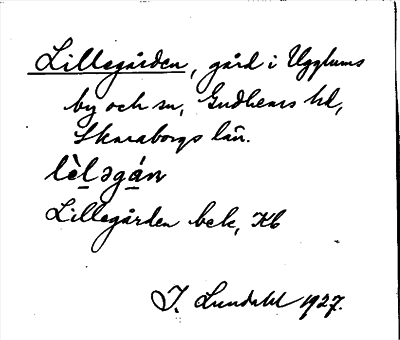 Lillegården, gård i Ugglums
by och sn, Gudhems hd,
Skaraborgs län.
lèl̠əgá̠n
Lillegården bek, Kb
I. Lundahl 1927.